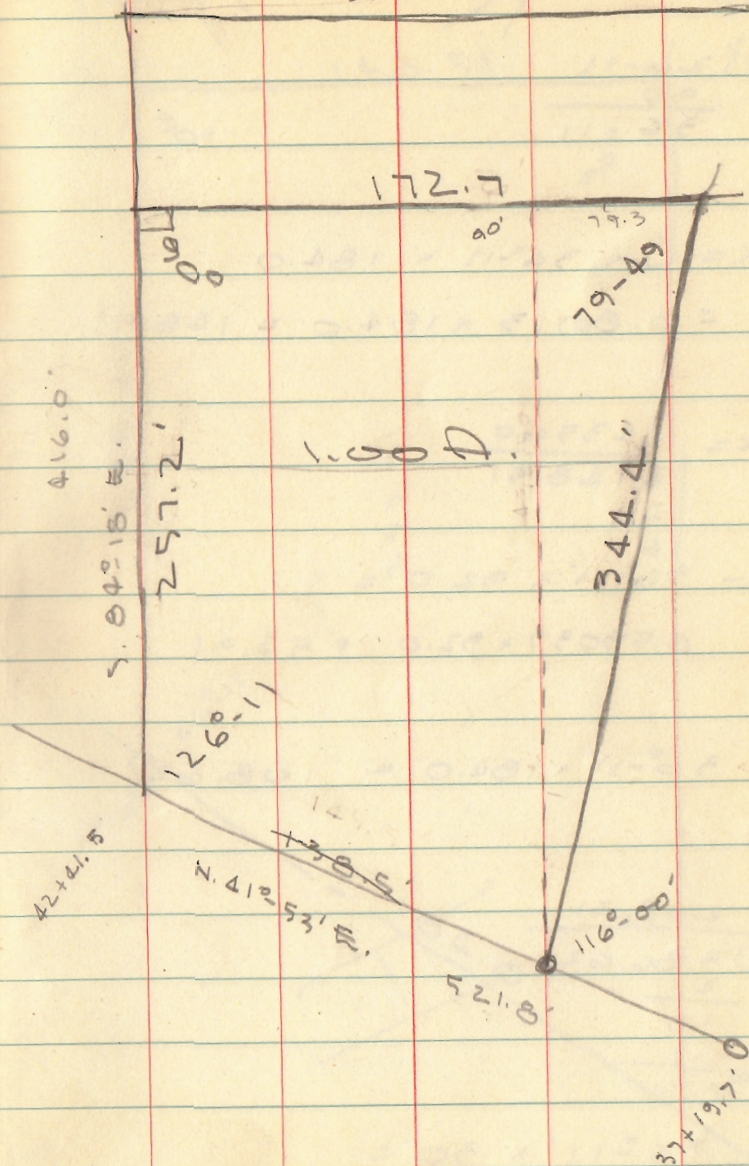 172.7
90°
90'
79.3
79-49
416.0'
S. 84°-18' E.
257.2'
1.00 A.
344.4"
126°-11
138.5'
N. 41°-53' E.
42+41.5
116°-00-
521.8'
37+19.7